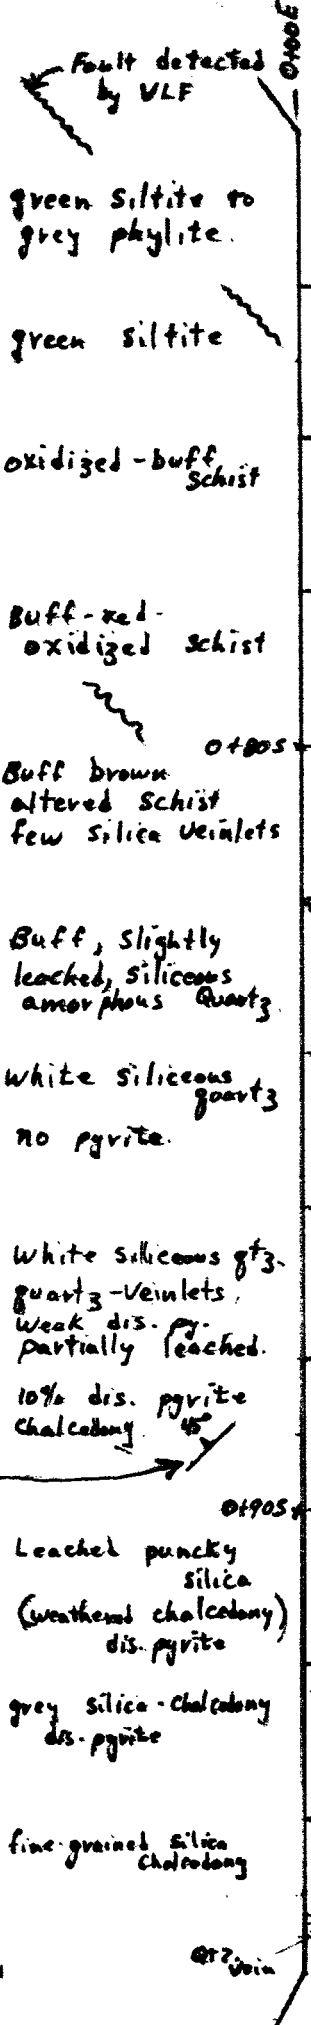 0+00E
Fault detected
by VLF
green siltite to
grey phylite.
green siltite
oxidized - buff
schist
Buff-red-
oxidized schist
0+80S
Buff brown
altered schist
few silica veinlets
Buff, slightly
leached, siliceous
amorphous Quartz.
white siliceous
quartz
no pyrite.
white siliceous qtz-
quartz-veinlets,
weak dis. py.
partially leached.
10% dis. pyrite
chalcedony
45°
0+90S
Leached puncky
silica
(weathered chalcedony)
dis. pyrite
grey silica-chalcedony
dis. pyrite
fine-grained silica
chalcedony
QTZ.
vein